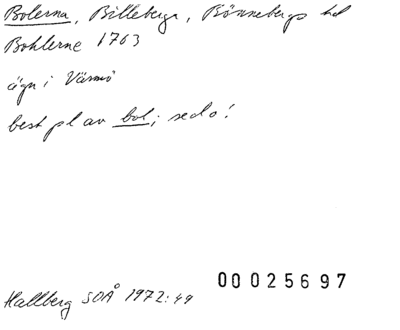 Bolerna, Billeberga, Rönnebergs hd
Bohlerne 1763
ägor i Värmö
best pl av bol; se d o!
00025697
Hallberg SOÅ 1972:49